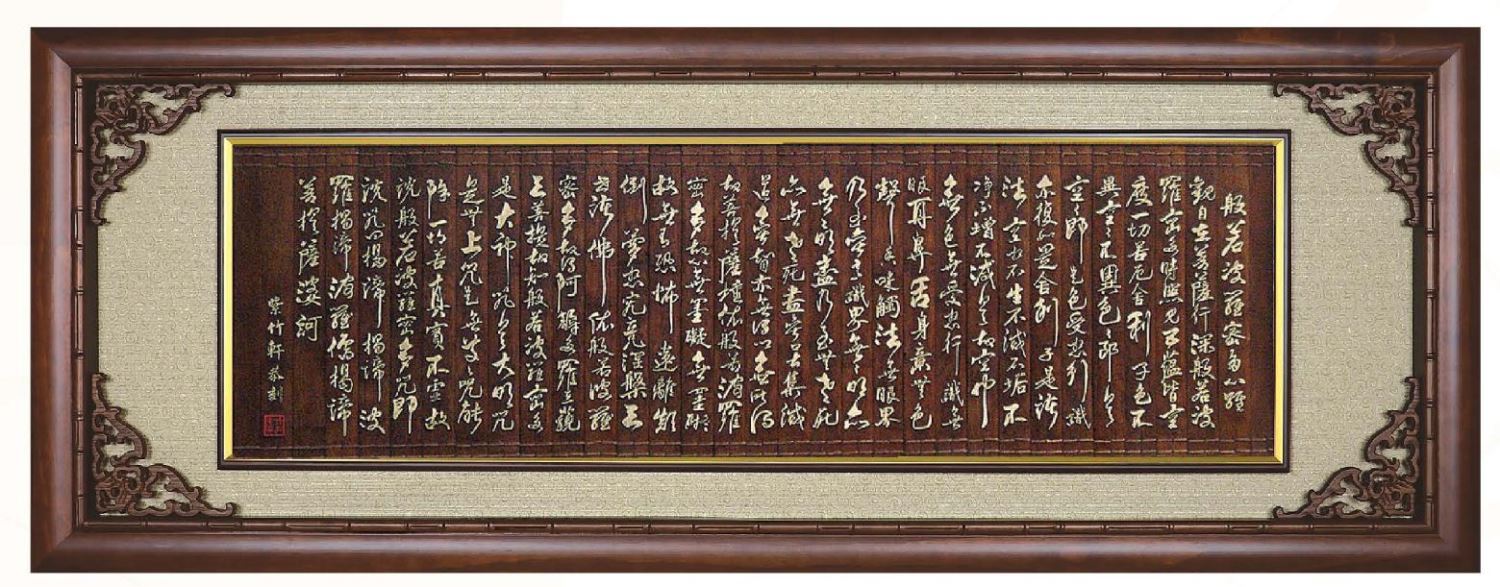 般若波羅蜜多心經
觀自在菩薩行深般若波
羅蜜多時照見五蘊皆空
度一切苦厄舍利子色不
異空空不異色色即是
空空即是色受想行識
亦復如是舍利子是諸
法空相不生不滅不垢不
淨不增不減是故空中
無色無受想行識無
眼耳鼻舌身意無色
聲香味觸法無眼界
乃至無意識界無無明亦
無無明盡乃至無老死
亦無老死盡無苦集滅
道無智亦無得以無所得
故菩提薩埵依般若波羅
蜜多故心無罣礙無罣礙
故無有恐怖遠離顛
倒夢想究竟涅槃三
世諸佛依般若波羅
蜜多故得阿耨多羅三藐
三菩提故知般若波羅蜜多
是大神咒是大明咒
是無上咒是無等等咒能
除一切苦真實不虛故
說般若波羅蜜多咒即
說咒曰揭諦揭諦波
羅揭諦波羅僧揭諦
菩提薩婆訶
紫竹軒敬刻